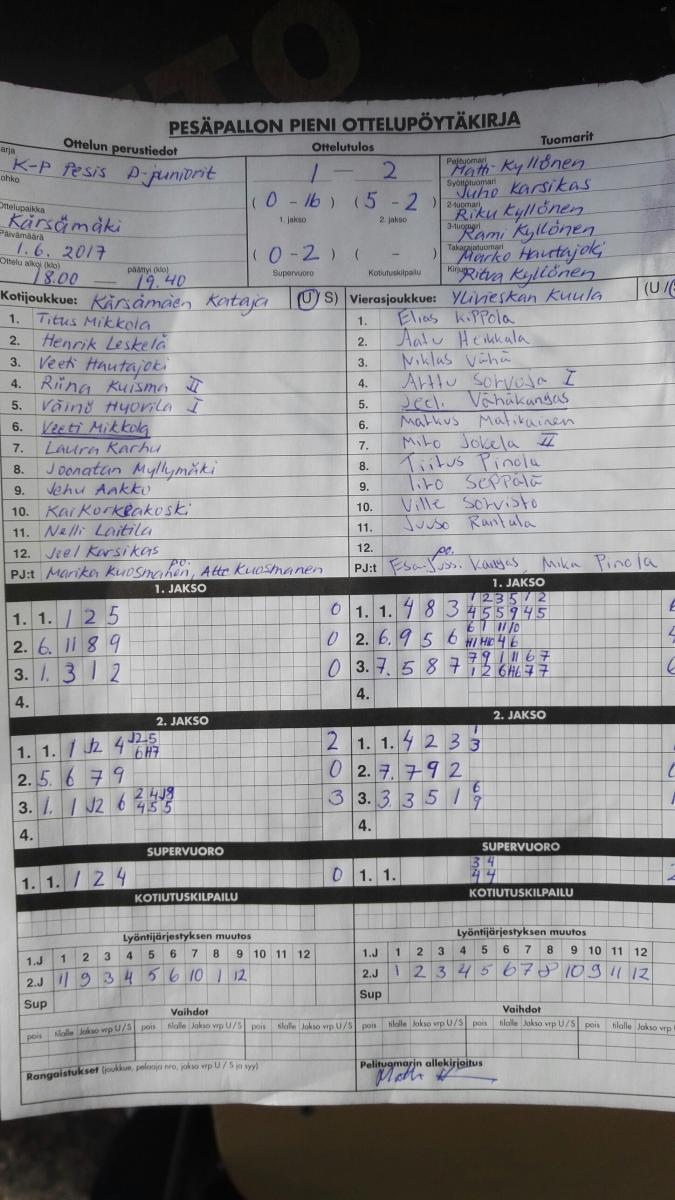 PESÄPALLON PIENI OTTELUPÖYTÄKIRJA
Ottelun perustiedot
Ottelutulos
Tuomarit
arja
K-P Pesis D-juniorit
ohko
Ottelupaikka
Kärsämäki
Päivämäärä
1.6. 2017
Ottelu alkoi (klo) päättyi (klo)
18.00 — 19.40
1 — 2
( 0 - 16 ) ( 5 - 2 )
1. jakso 2. jakso
( 0 - 2 ) ( - )
Supervuoro Kotiutuskilpailu
Pelituomari
Matti Kyllönen
Syöttötuomari
Juho Karsikas
2-tuomari
Riku Kyllönen
3-tuomari
Rami Kyllönen
Takarajatuomari
Marko Hautajoki
Kirjuri
Ritva Kyllönen
Kotijoukkue: Kärsämäen Kataja (U/S)
1. Titus Mikkola
2. Henrik Leskelä
3. Veeti Hautajoki
4. Riina Kuisma II
5. Väinö Hyörilä I
6. Veeti Mikkola
7. Laura Karhu
8. Joonatan Myllymäki
9. Jehu Aakko
10. Kai Korkeakoski
11. Nelli Laitila
12. Joel Karsikas
po.
PJ:t Marika Kuosmanen, Atte Kuosmanen
Vierasjoukkue: Ylivieskan Kuula (U/
1. Elias Kippola
2. Aatu Heikkala
3. Niklas Vähä
4. Arttu Sorvoja I
5. Vähäkangas
6. Markus Matikainen
7. Miro Jokela II
8. Tiitus Pinola
9. Iiro Seppälä
10. Ville Sorvisto
11. Juuso Rantula
12.
po.
PJ:t Esa-Jussi Kangas, Mika Pinola
1. JAKSO
1. 1. 1 2 5 0
2. 6. 11 8 9 0
3. 1. 3 1 2 0
4.
1. JAKSO
1 2 3 5 1 2
1. 1. 4 8 3 4 5 5 9 4 5
6 1 11 10
2. 6. 9 5 6 4 6
7 9 1 11 6 7
3. 7. 5 8 7 1 2 6 H6 7 7
4.
2. JAKSO
1. 1. 1 J2 4 J2 5 2
6 H7
2. 5. 6 7 9 0
2 4 J8
3. 1. 1 J2 6 4 5 5 3
4.
2. JAKSO
1
1. 1. 4 2 3 3
2. 7. 7 9 2
6
3. 3. 3 5 1 9
4.
SUPERVUORO
1. 1. 1 2 4 0
SUPERVUORO
3 4
1. 1. 4 4
KOTIUTUSKILPAILU
KOTIUTUSKILPAILU
Lyöntijärjestyksen muutos
1.J 1 2 3 4 5 6 7 8 9 10 11 12
2.J 11 9 3 4 5 6 10 1 12
Sup
Lyöntijärjestyksen muutos
1.J 1 2 3 4 5 6 7 8 9 10 11 12
2.J 1 2 3 4 5 6 7 8 10 9 11 12
Sup
Vaihdot
pois tilalle Jakso vrp U/S pois tilalle Jakso vrp U/S pois tilalle Jakso vrp U/S
Vaihdot
pois tilalle Jakso vrp U/S pois tilalle Jakso vrp U/S pois tilalle
Rangaistukset (joukkue, pelaaja nro, jakso vrp U / S ja syy)
Pelituomarin allekirjoitus